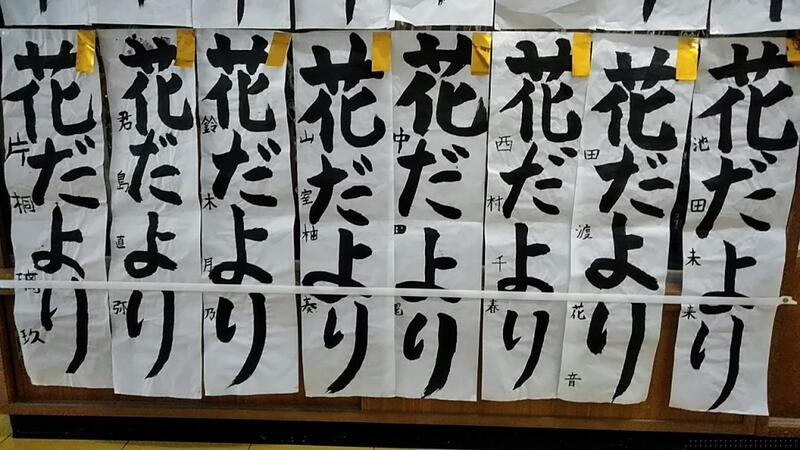 花だより
池田未来
花だより
田渡花音
花だより
西村千春
花だより
中田
花だより
山室柚奏
花だより
鈴木月乃
花だより
君島直弥
花だより
片桐璃玖